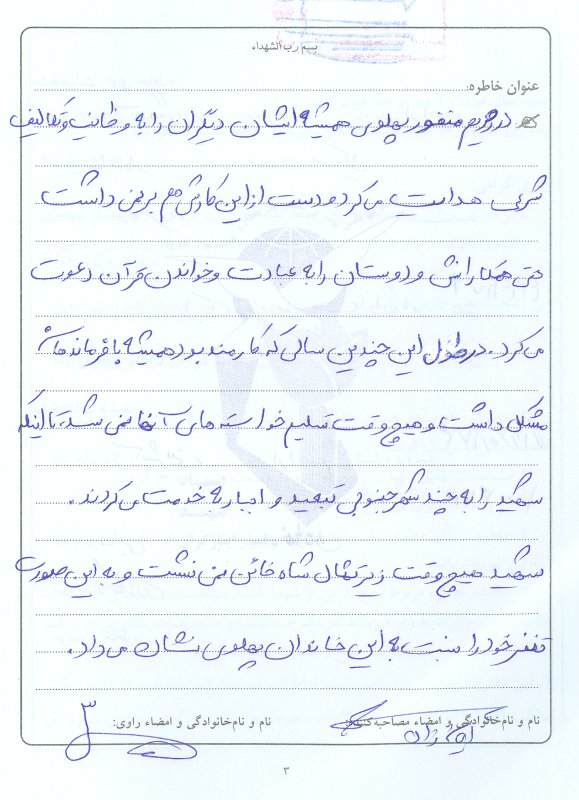 بسم رب الشهداء
عنوان خاطره:
در رژیم منفور پهلوی همیشه ایشان دیگران را به وظایف و تکالیف
شرعی هدایت می‌کرد و دست از این کارش هم بر نمی داشت
حتی همکارانش و دوستان را به عبادت و خواندن قرآن دعوت
می کرد. در طول این چندین سالی که کارمند بود همیشه با فرمانده هاش
مشکل داشت و هیچ وقت تسلیم خواسته های آنها نمی شد، تا اینکه
شهید را به چند شهر جنوبی تبعید و اجبار به خدمت می کردند.
شهید هیچ وقت زیر تمثال شاه خائن نمی نشست و به این صورت
تنفر خود را نسبت به این خاندان پهلوی نشان می داد.
نام و نام‌خانوادگی و امضاء مصاحبه‌کننده:
نام و نام‌خانوادگی و امضاء راوی:
۳